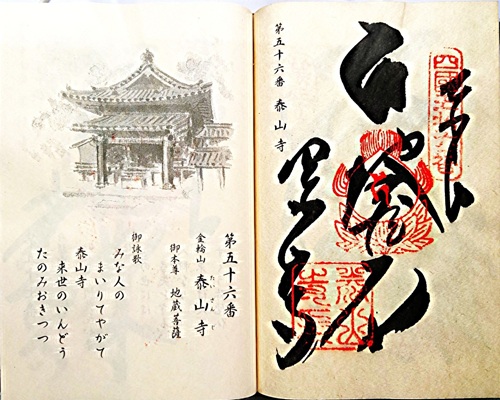 第五十六番 泰山寺
奉
地蔵菩薩
泰山寺
第五十六番
金輪山 泰山寺
たいさんじ
御本尊 地蔵菩薩
御詠歌
みな人の
まいりてやがて
泰山寺
来世のいんどう
たのみおきつつ